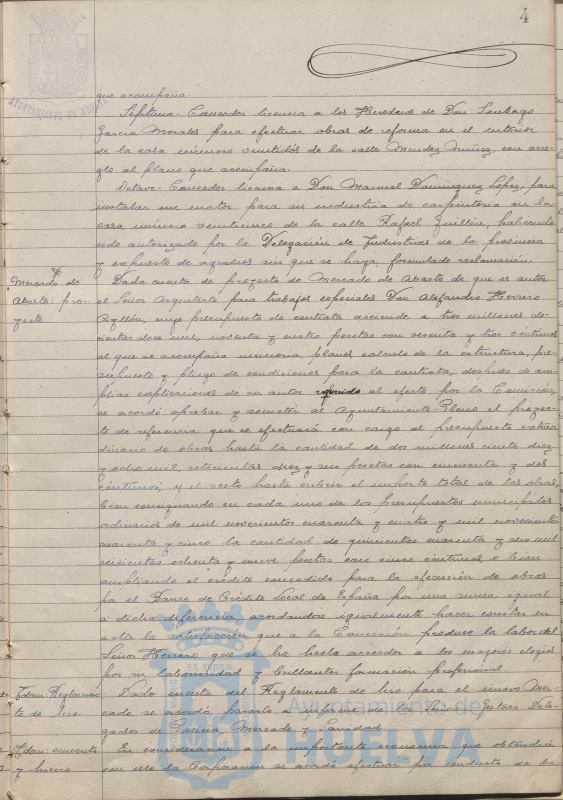 4
AYUNTAMIENTO DE HUELVA
que acompaña.
Septimo.- Conceder licencia a los Herederos de Don Santiago
Garcia Morales para efectuar obras de reforma en el interior
de la casa número veintidós de la calle Mendez Nuñez, con arre-
glo al plano que acompaña.
Octavo.- Conceder licencia a Don Manuel Dominguez Lopez, para
instalar un motor para su industria de carpinteria en la
casa número veinticinco de la calle Rafael Guillén, habiendo
sido autorizado por la Delegación de Industrias de la provincia
y expuesto de agravios sin que se haya formulado reclamación.
Mercado de
Abasto: pro-
yecto
Dada cuenta de proyecto de Mercado de Abasto de que es autor
el Señor Arquitecto para trabajos especiales Don Alejandro Herrero
Ayllón, cuyo presupuesto de contrata asciende a tres millones do-
cientas doce mil, noventa y cuatro pesetas con sesenta y tres céntimos
al que se acompaña memoria, planos, calculo de la estructura, pre-
supuesto y pliego de condiciones para la contrata, después de am-
plias explicaciones de su autor al efecto por la Comisión,
se acordó aprobar y someter al Ayuntamiento Pleno el proyec-
to de referencia que se efectuará con cargo al presupuesto extraor-
dinario de obras hasta la cantidad de dos millones ciento diez
y ocho mil, setecientas diez y seis pesetas con cincuenta y dos
céntimos; y el resto hasta cubrir el importe total de las obras,
bien consignando en cada uno de los presupuestos municipales
ordinarios de mil novecientos cuarenta y cuatro y mil novecientos
cuarenta y cinco la cantidad de quinientas cuarenta y seis mil
seiscientas ochenta y nueve pesetas con cinco céntimos, o bien
ampliando el crédito concedido para la ejecución de obras
por el Banco de Crédito Local de España por una suma igual
a dicha diferencia, acordandose igualmente hacer constar en
acta la satisfacción que a la Comisión produce la labor del
Señor Herrero que se ha hecho acreedor a los mayores elogios
por su laboriosidad y brillante formación profesional.
Idem: Reglamen-
to de Uso
Dada cuenta del Reglamento de Uso para el nuevo Mer-
cado se acordó, pasarlo a informe de los Señores Gestores Dele-
gados de Policia, Mercado y Sanidad.
Idem: cemento
y hierro
En consideración a la importante economia que obtendrá
con ello la Corporación se acordó efectuar por conducto de la
Ayuntamiento de
HUELVA